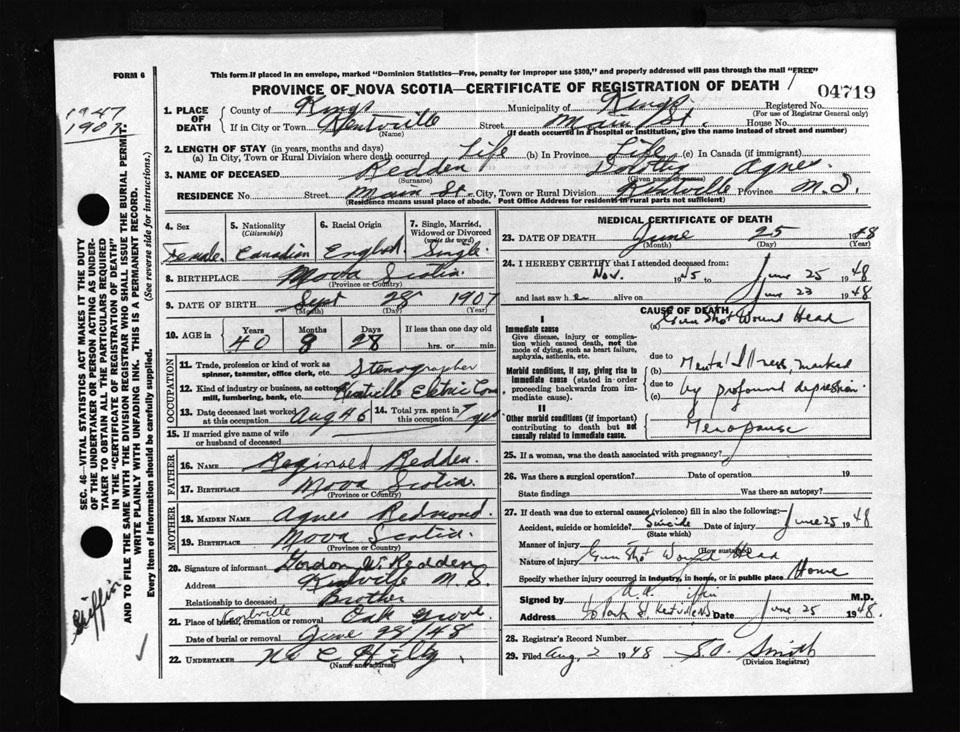 FORM 6
This form if placed in an envelope, marked "Dominion Statistics—Free, penalty for improper use $300," and properly addressed will pass through the mail "FREE"
PROVINCE OF NOVA SCOTIA—CERTIFICATE OF REGISTRATION OF DEATH
04719
1947
1907
1. PLACE OF DEATH
County of Kings Municipality of Kings Registered No.
(For use of Registrar General only)
If in City or Town Kentville Street Main St. House No.
(Name) (If death occurred in a hospital or institution, give the name instead of street and number)
2. LENGTH OF STAY (in years, months and days)
(a) In City, Town or Rural Division where death occurred Life (b) In Province Life (c) In Canada (if immigrant)
3. NAME OF DECEASED Redden Agnes
(Surname) (Given name or names)
RESIDENCE No Street Main St. City, Town or Rural Division Kentville Province N.S.
(Residence means usual place of abode. Post Office Address for residents in rural parts not sufficient)
4. Sex 5. Nationality (Citizenship) 6. Racial Origin 7. Single, Married, Widowed or Divorced (write the word)
Female Canadian English Single
8. BIRTHPLACE Nova Scotia
(Province or Country)
9. DATE OF BIRTH Sept 28 1907
(Month) (Day) (Year)
10. AGE in Years Months Days If less than one day old
40 8 28 hrs. or min.
OCCUPATION
11. Trade, profession or kind of work as spinner, teamster, office clerk, etc. Stenographer
12. Kind of industry or business, as cotton mill, lumbering, bank, etc. Kentville Electric Com
13. Date deceased last worked at this occupation Aug 46 14. Total yrs. spent in this occupation 7 yrs
15. If married give name of wife or husband of deceased
FATHER
16. NAME Reginald Redden
17. BIRTHPLACE Nova Scotia
(Province or Country)
MOTHER
18. MAIDEN NAME Agnes Redmond
19. BIRTHPLACE Nova Scotia
(Province or Country)
20. Signature of informant Gordon W. Redden
Address Kentville N.S.
Relationship to deceased Brother
21. Place of burial, cremation or removal Kentville Oak Grove
Date of burial or removal June 28/48
22. UNDERTAKER
(Name and address)
MEDICAL CERTIFICATE OF DEATH
23. DATE OF DEATH June 25 1948
(Month) (Day) (Year)
24. I HEREBY CERTIFY that I attended deceased from:
Nov. 1945 to June 25 1948
and last saw her alive on June 23 1948
CAUSE OF DEATH
I
Immediate cause
Give disease, injury or complication which caused death, not the mode of dying, such as heart failure, asphyxia, asthenia, etc.
(a) Gun Shot Wound Head
due to
Morbid conditions, if any, giving rise to immediate cause (stated in order proceeding backwards from immediate cause).
(b) Mental Illness, marked
due to
(c) by profound depression
II
Other morbid conditions (if important) contributing to death but not causally related to immediate cause.
Menopause
25. If a woman, was the death associated with pregnancy?
26. Was there a surgical operation? Date of operation 19
State findings Was there an autopsy?
27. If death was due to external causes (violence) fill in also the following:—
Accident, suicide or homicide? Suicide Date of injury June 25 1948
(State which)
Manner of injury
(How sustained)
Nature of injury Gun Shot Wound Head
Specify whether injury occurred in industry, in home, or in public place Home
Signed by M.D.
Address Kentville Date June 25 1948.
28. Registrar's Record Number
29. Filed Aug 2 1948 Smith
(Division Registrar)
SEC. 46—VITAL STATISTICS ACT MAKES IT THE DUTY
OF THE UNDERTAKER OR PERSON ACTING AS UNDER-
TAKER TO OBTAIN ALL THE PARTICULARS REQUIRED
IN THE "CERTIFICATE OF REGISTRATION OF DEATH"
AND TO FILE THE SAME WITH THE DIVISION REGISTRAR WHO SHALL ISSUE THE BURIAL PERMIT.
WRITE PLAINLY WITH UNFADING INK. THIS IS A PERMANENT RECORD.
Every item of information should be carefully supplied. (See reverse side for instructions.)